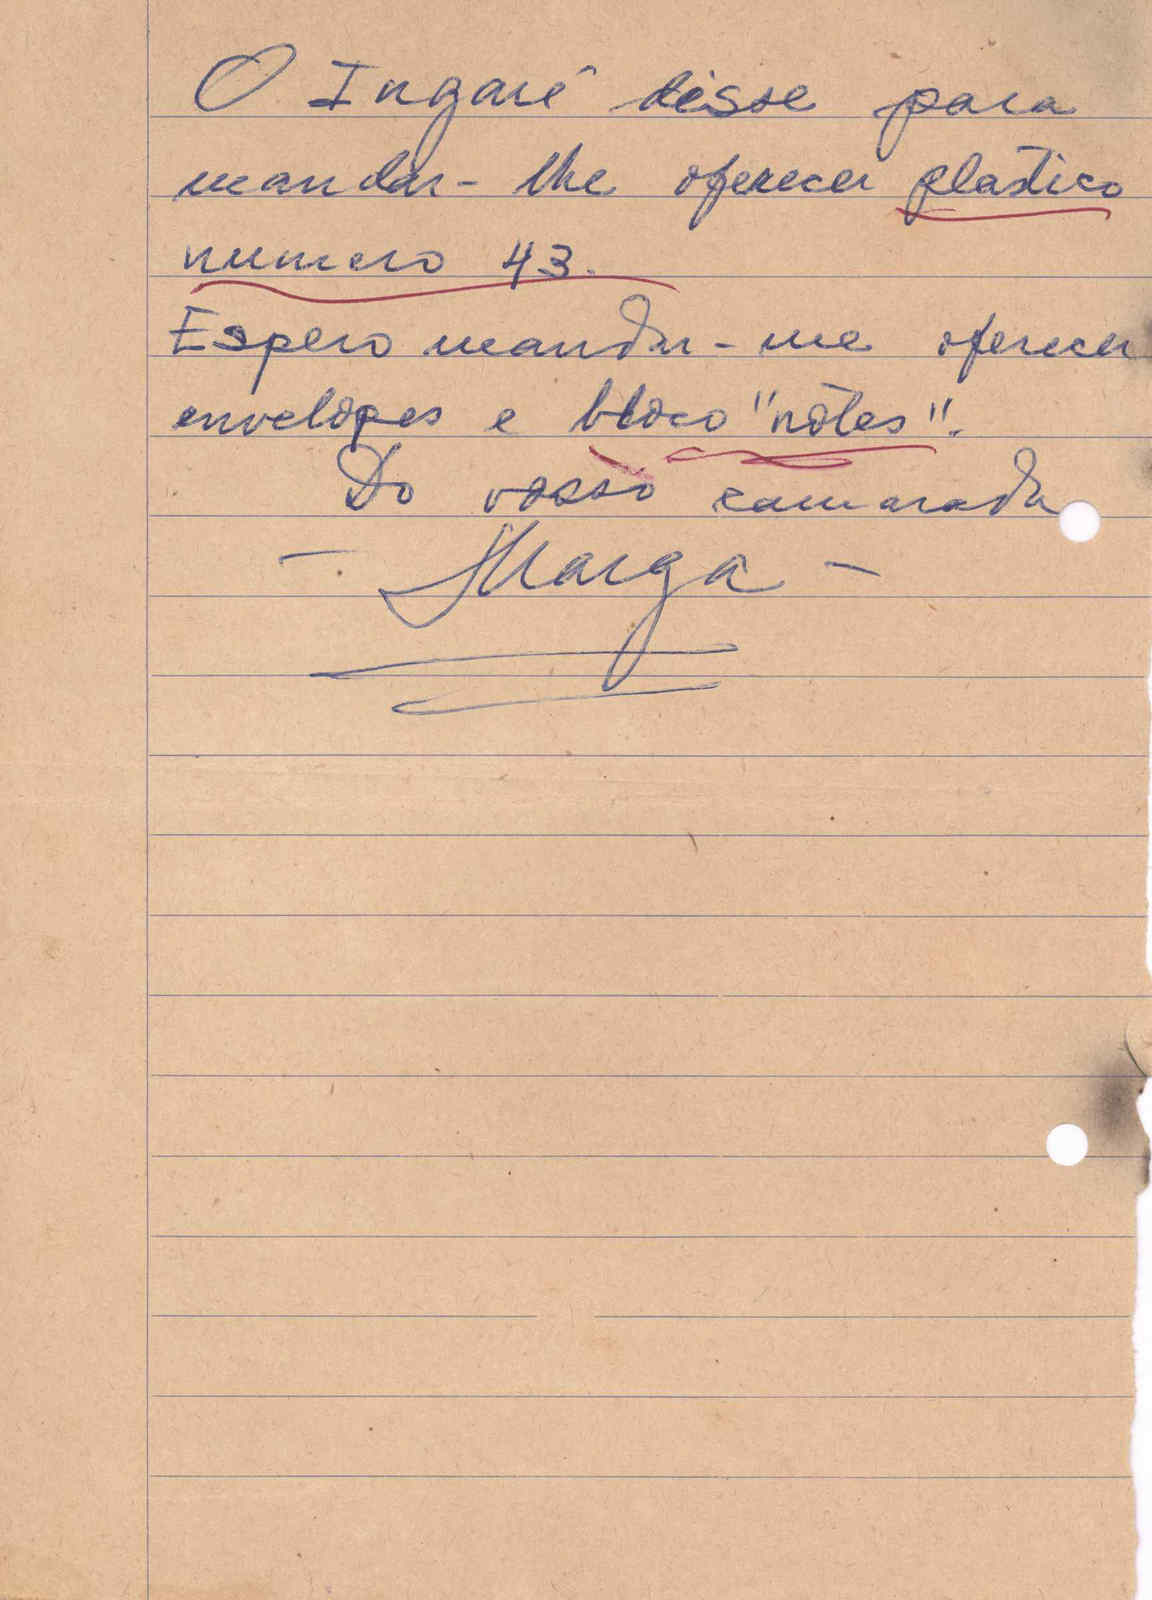 O Ingaré disse para
mandar-lhe oferecer plastico
numero 43.
Espero mandar-me oferecer
envelopes e bloco "nôtes".
Do vosso camarada
- Marga -